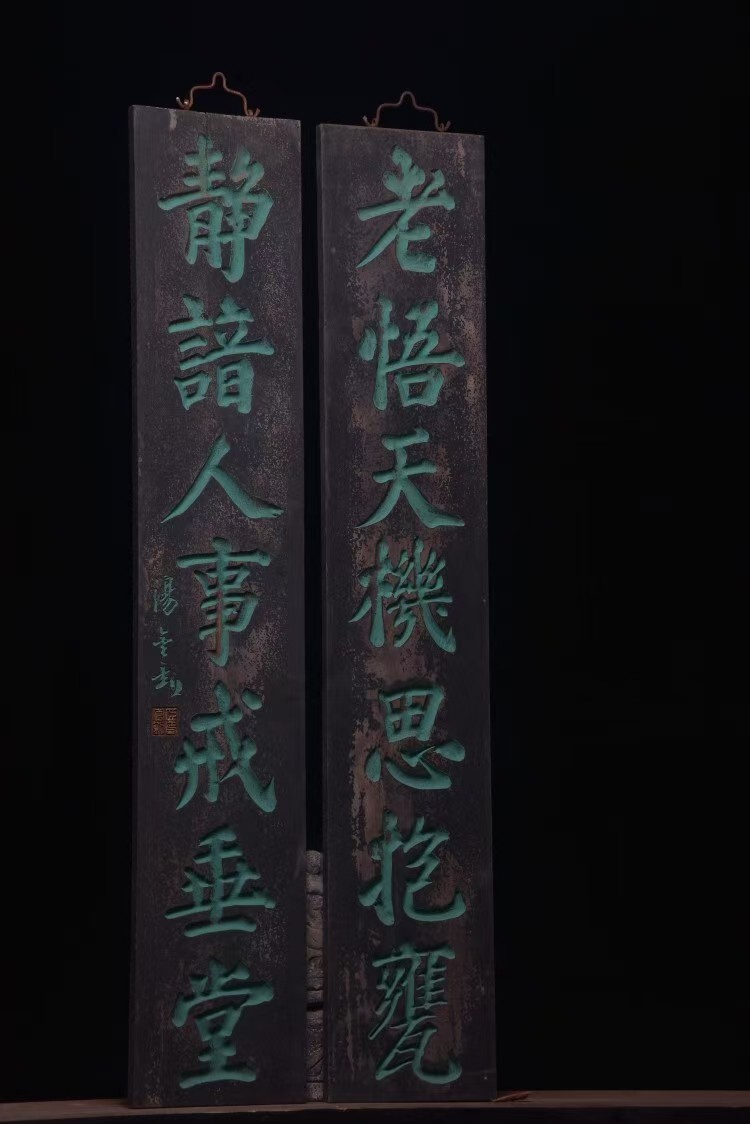 老悟天機思抱甕
靜諳人事戒垂堂
湯金釗